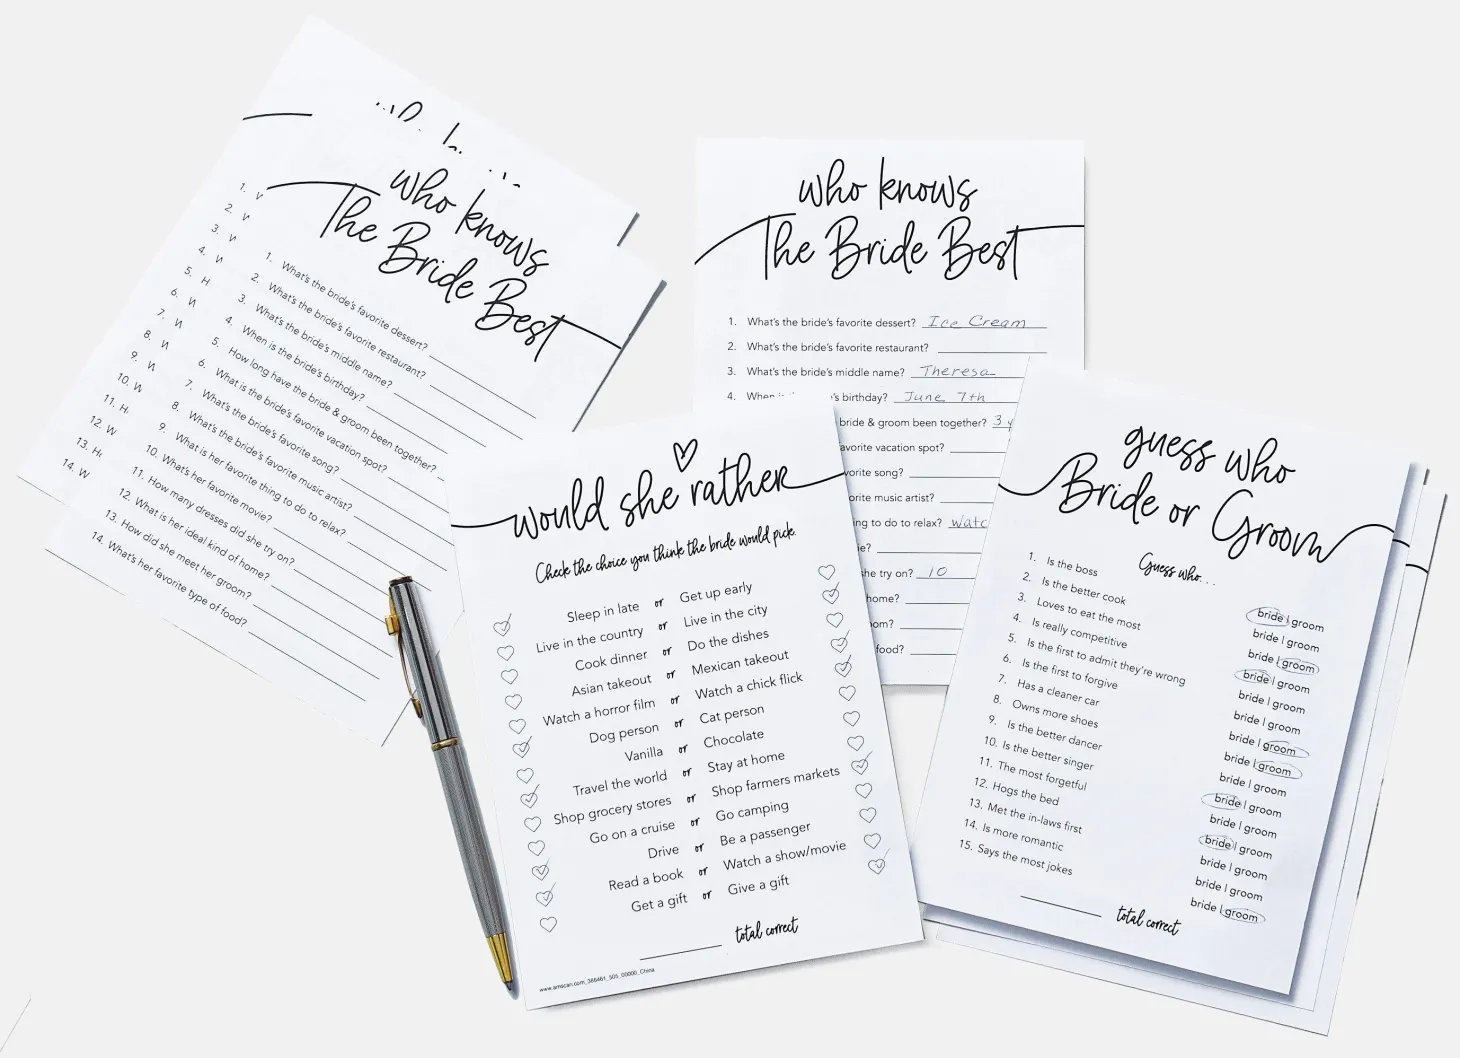 who knows
The Bride Best
1. What's the bride's favorite dessert?
2. What's the bride's favorite restaurant?
3. What's the bride's middle name?
4. When is the bride's birthday?
5. How long have the bride & groom been together?
6. What is the bride's favorite vacation spot?
7. What's the bride's favorite song?
8. What's the bride's favorite music artist?
9. What is her favorite thing to do to relax?
10. What's her favorite movie?
11. How many dresses did she try on?
12. What is her ideal kind of home?
13. How did she meet her groom?
14. What's her favorite type of food?
1. W
2. W
3. W
4. W
5. H
6. W
7. W
8. W
9. W
10. W
11. H
12. W
13. H
14. W
who knows
The Bride Best
1. What's the bride's favorite dessert? Ice Cream
2. What's the bride's favorite restaurant?
3. What's the bride's middle name? Theresa
4. When 's birthday? June 7th
bride & groom been together? 3 y
favorite vacation spot?
vorite song?
orite music artist?
ng to do to relax? Watc
ie?
he try on? 10
home?
om?
food?
would she rather
Check the choice you think the bride would pick.
Sleep in late or Get up early
Live in the country or Live in the city
Cook dinner or Do the dishes
Asian takeout or Mexican takeout
Watch a horror film or Watch a chick flick
Dog person or Cat person
Vanilla or Chocolate
Travel the world or Stay at home
Shop grocery stores or Shop farmers markets
Go on a cruise or Go camping
Drive or Be a passenger
Read a book or Watch a show/movie
Get a gift or Give a gift
total correct
www.amscan.com_366461_505_00000_China
guess who
Bride or Groom
Guess who...
1. Is the boss bride | groom
2. Is the better cook bride | groom
3. Loves to eat the most bride | groom
4. Is really competitive bride | groom
5. Is the first to admit they're wrong bride | groom
6. Is the first to forgive bride | groom
7. Has a cleaner car bride | groom
8. Owns more shoes bride | groom
9. Is the better dancer bride | groom
10. Is the better singer bride | groom
11. The most forgetful bride | groom
12. Hogs the bed bride | groom
13. Met the in-laws first bride | groom
14. Is more romantic bride | groom
15. Says the most jokes bride | groom
total correct